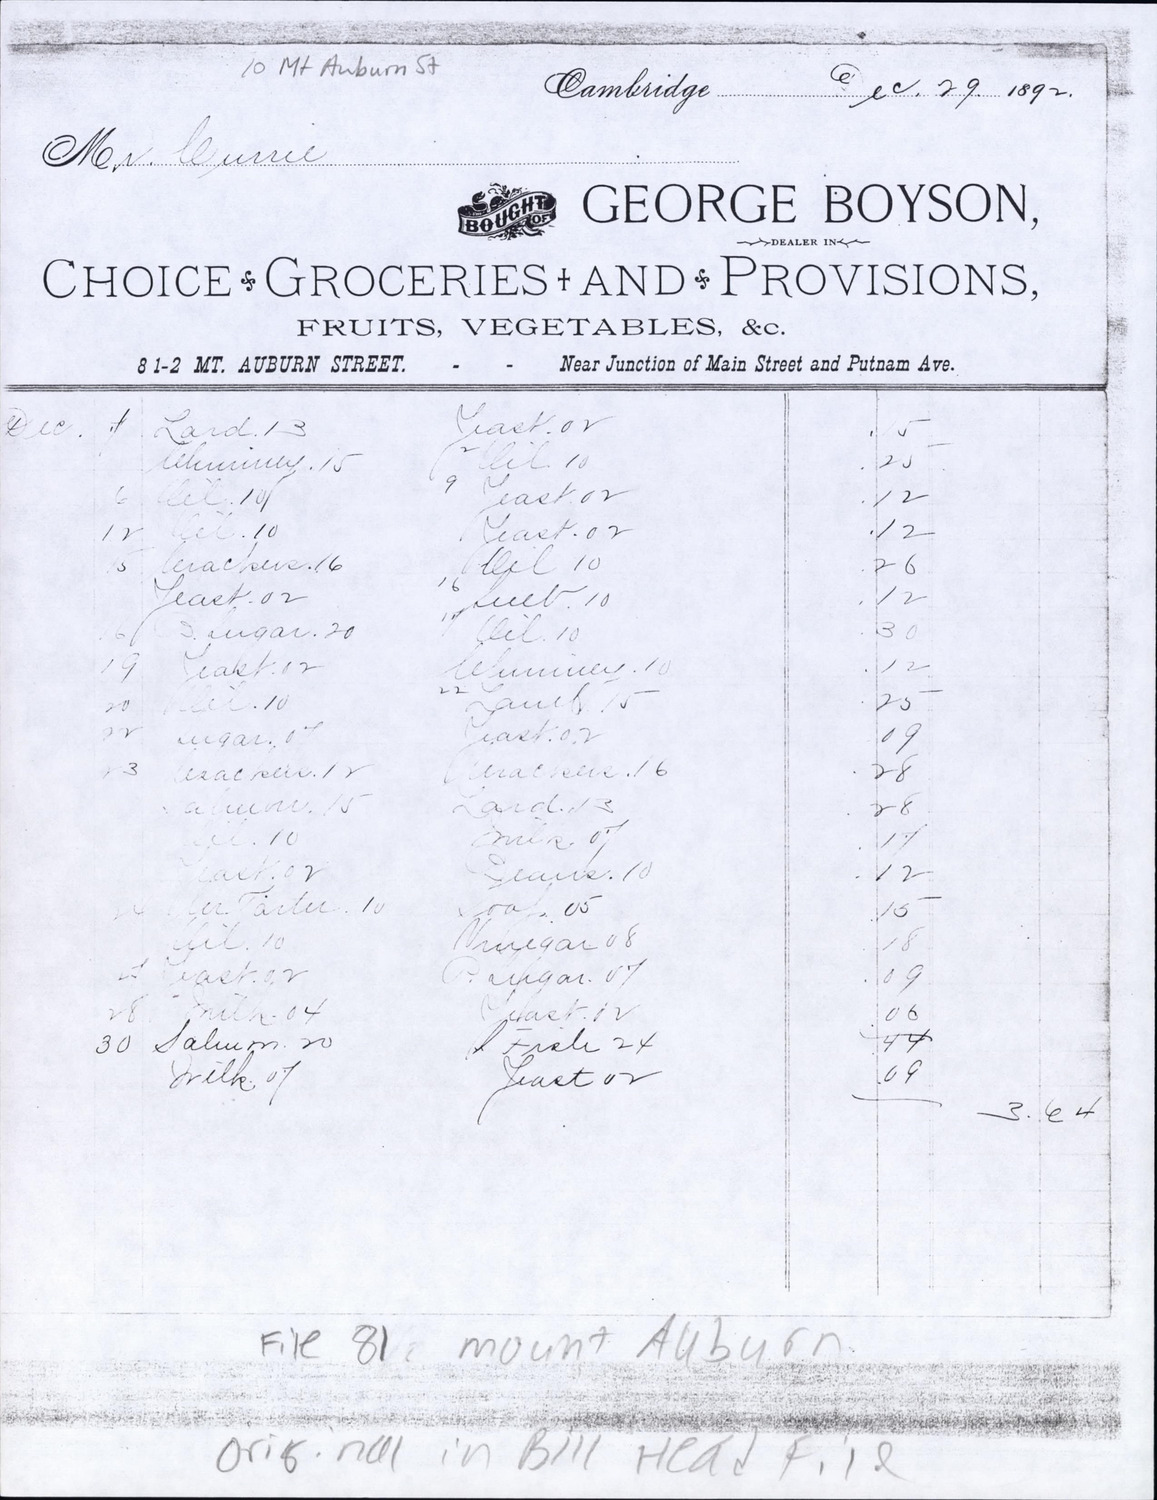 10 Mt Auburn St
Cambridge Dec. 29 1892.
Mr. Currie
BOUGHT OF GEORGE BOYSON,
DEALER IN
CHOICE GROCERIES AND PROVISIONS,
FRUITS, VEGETABLES, &c.
81-2 MT. AUBURN STREET. - - Near Junction of Main Street and Putnam Ave.
Dec. 1 Lard. 13 Yeast. 02 .15
Chimney. 15 Oil 10 .25
6 Oil. 10 9 Yeast. 02 .12
12 Oil. 10 Yeast. 02 .12
15 Crackers. 16 Oil 10 .26
Yeast. 02 16 Suet. 10 .12
16 Sugar. 20 17 Oil. 10 .30
19 Yeast. 02 Chimney. 10 .12
20 Oil. 10 22 Lamb 15 .25
22 Sugar. 07 Yeast. 02 09
23 Crackers. 12 Crackers. 16 .28
Salmon. 15 Lard. 13 28
Oil. 10 Milk 07 .17
Yeast. 02 Beans. 10 .12
Cr. Tarter. 10 05 .15
Oil. 10 Vinegar 08 .18
Yeast. 02 Sugar. 07 .09
28 Milk. 04 Yeast. 02 06
30 Salmon. 20 Fish 24 .44
Milk. 07 Yeast 02 .09
3.64
File 81 mount Auburn
Original in Bill Head File